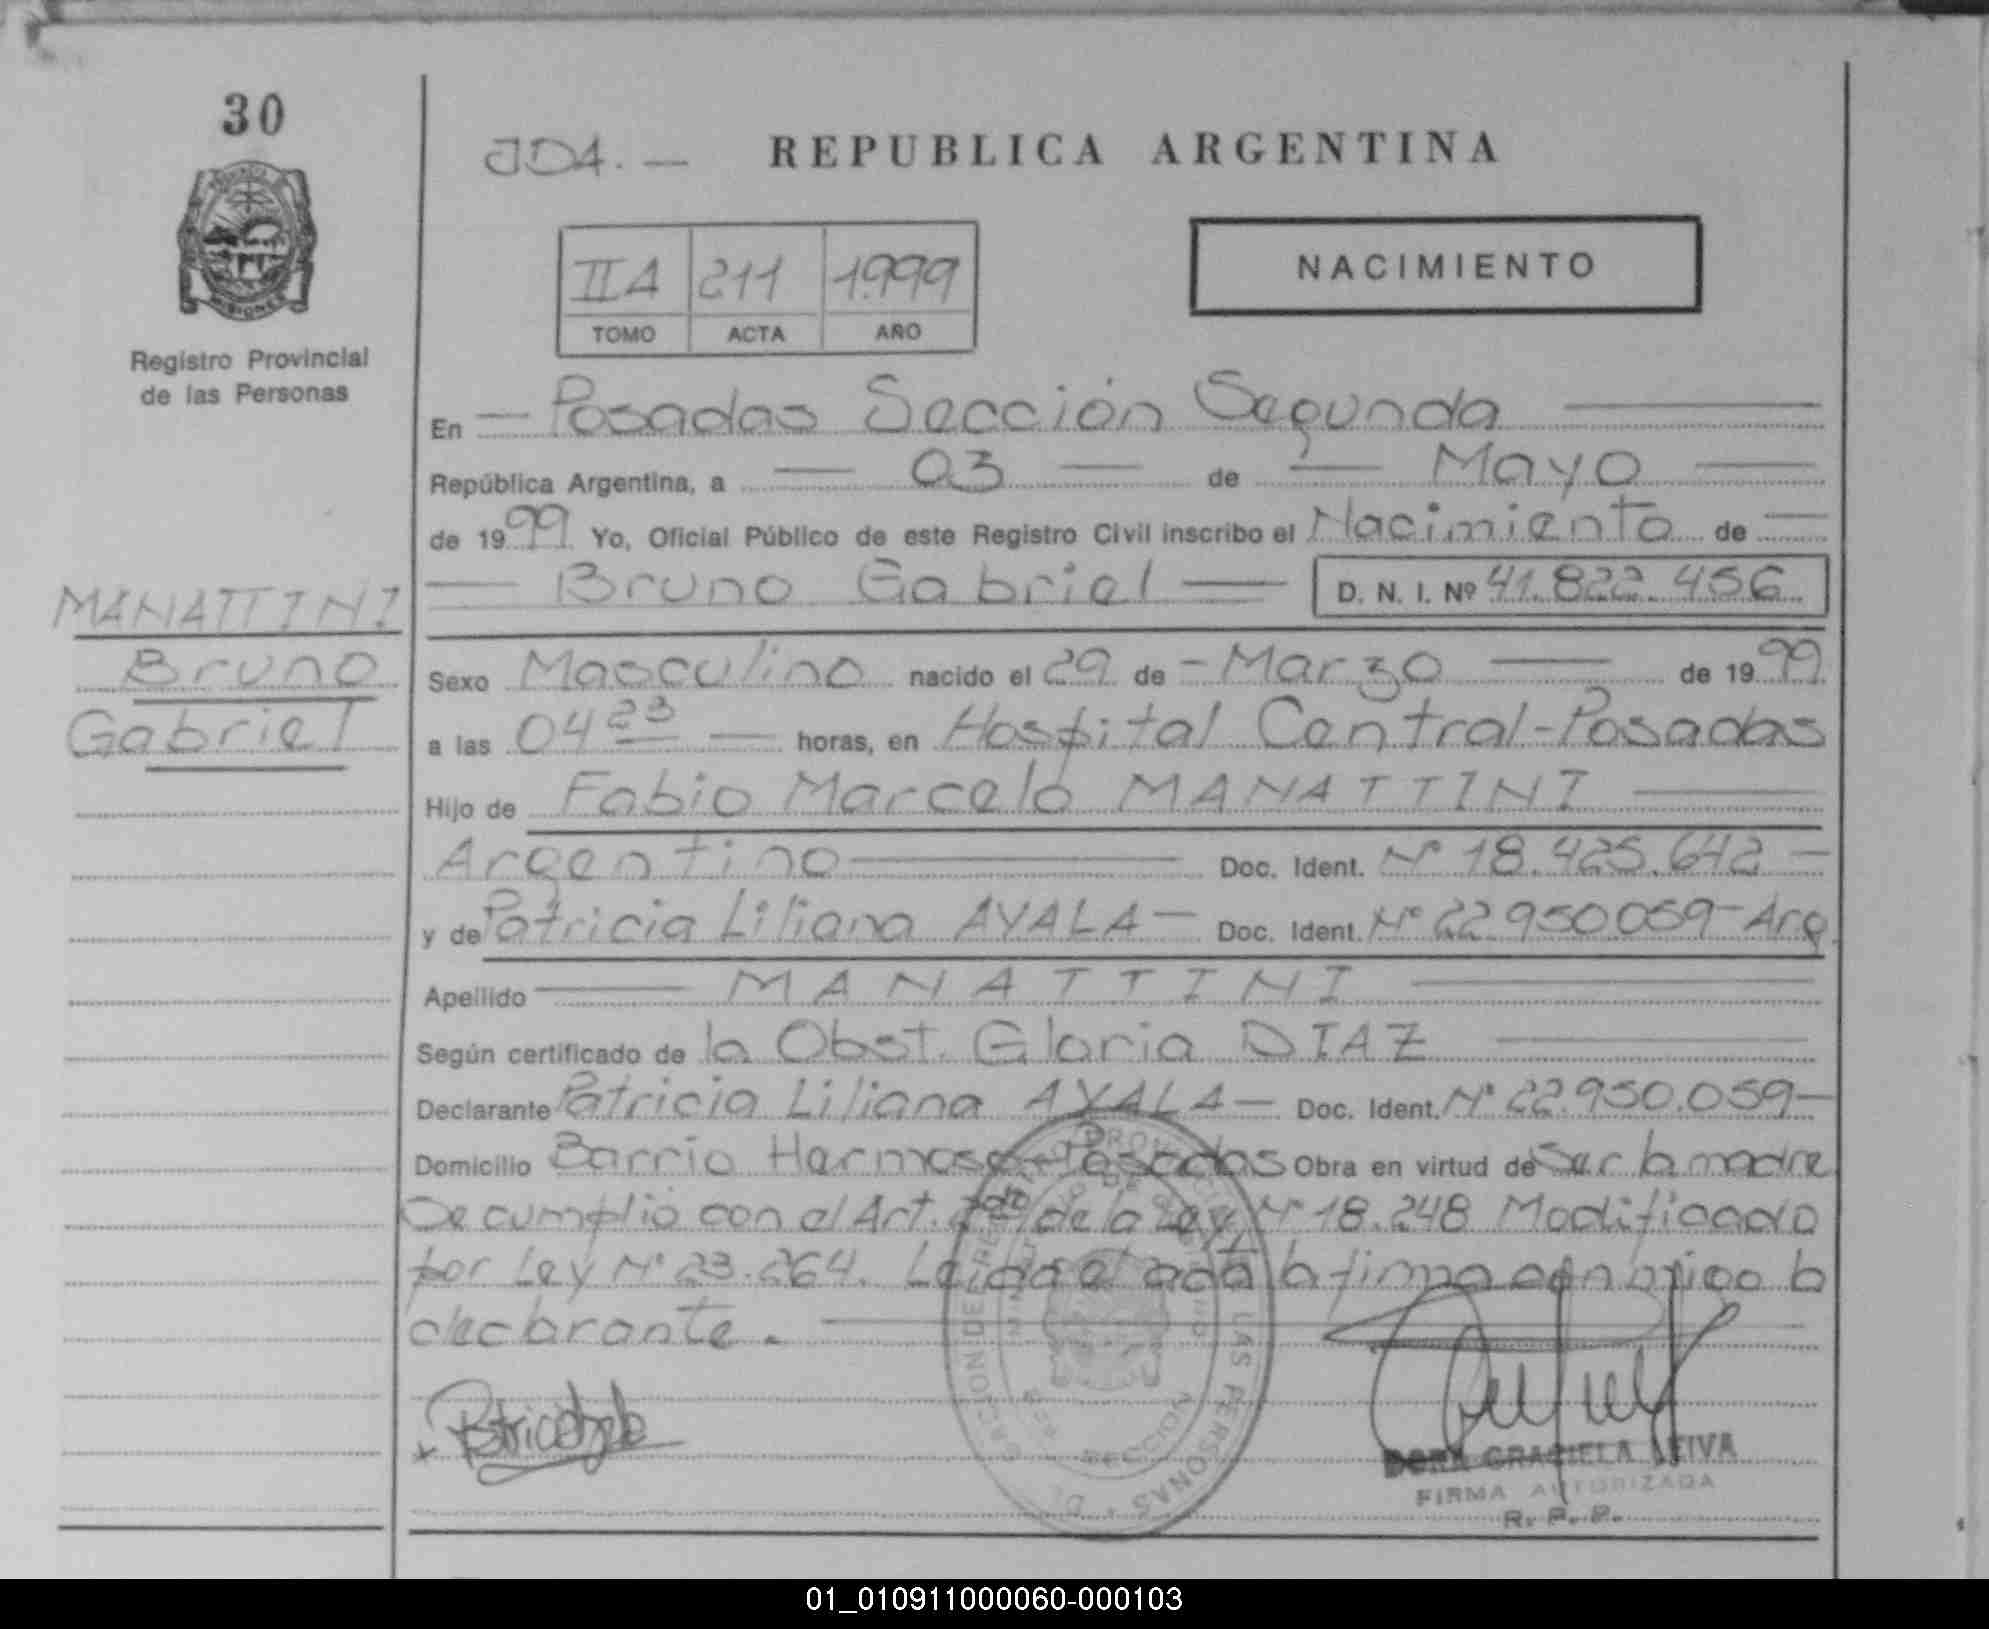 30
MISIONES
Registro Provincial
de las Personas
MANATTINI
Bruno
Gabriel
JDA. —
REPUBLICA ARGENTINA
IIA 211 1.999
TOMO ACTA AÑO
NACIMIENTO
En — Posadas Sección Segunda —
República Argentina, a — 03 — de — Mayo —
de 1999 Yo, Oficial Público de este Registro Civil inscribo el Nacimiento de —
— Bruno Gabriel — D. N. I. Nº 41.822.456
Sexo Masculino nacido el 29 de - Marzo — de 1999
a las 04 23 — horas, en Hospital Central-Posadas
Hijo de Fabio Marcelo MANATTINI —
Argentino — Doc. Ident. Nº 18.425.642 —
y de Patricia Liliana AYALA — Doc. Ident. Nº 22.950.059- Arg.
Apellido — MANATTINI —
Según certificado de la Obst. Gloria DIAZ —
Declarante Patricia Liliana AYALA — Doc. Ident. Nº 22.950.059 —
Domicilio Barrio Hermoso - Posadas Obra en virtud de Ser la madre
Se cumplió con el Art. de la Ley Nº 18.248 Modificado
por Ley Nº 23.264. Leida el acta la firma conmigo la
declarante. —
DE LAS PERSONAS
SECCION
DORA GRACIELA LEIVA
FIRMA AUTORIZADA
R. P. P.
01_010911000060-000103